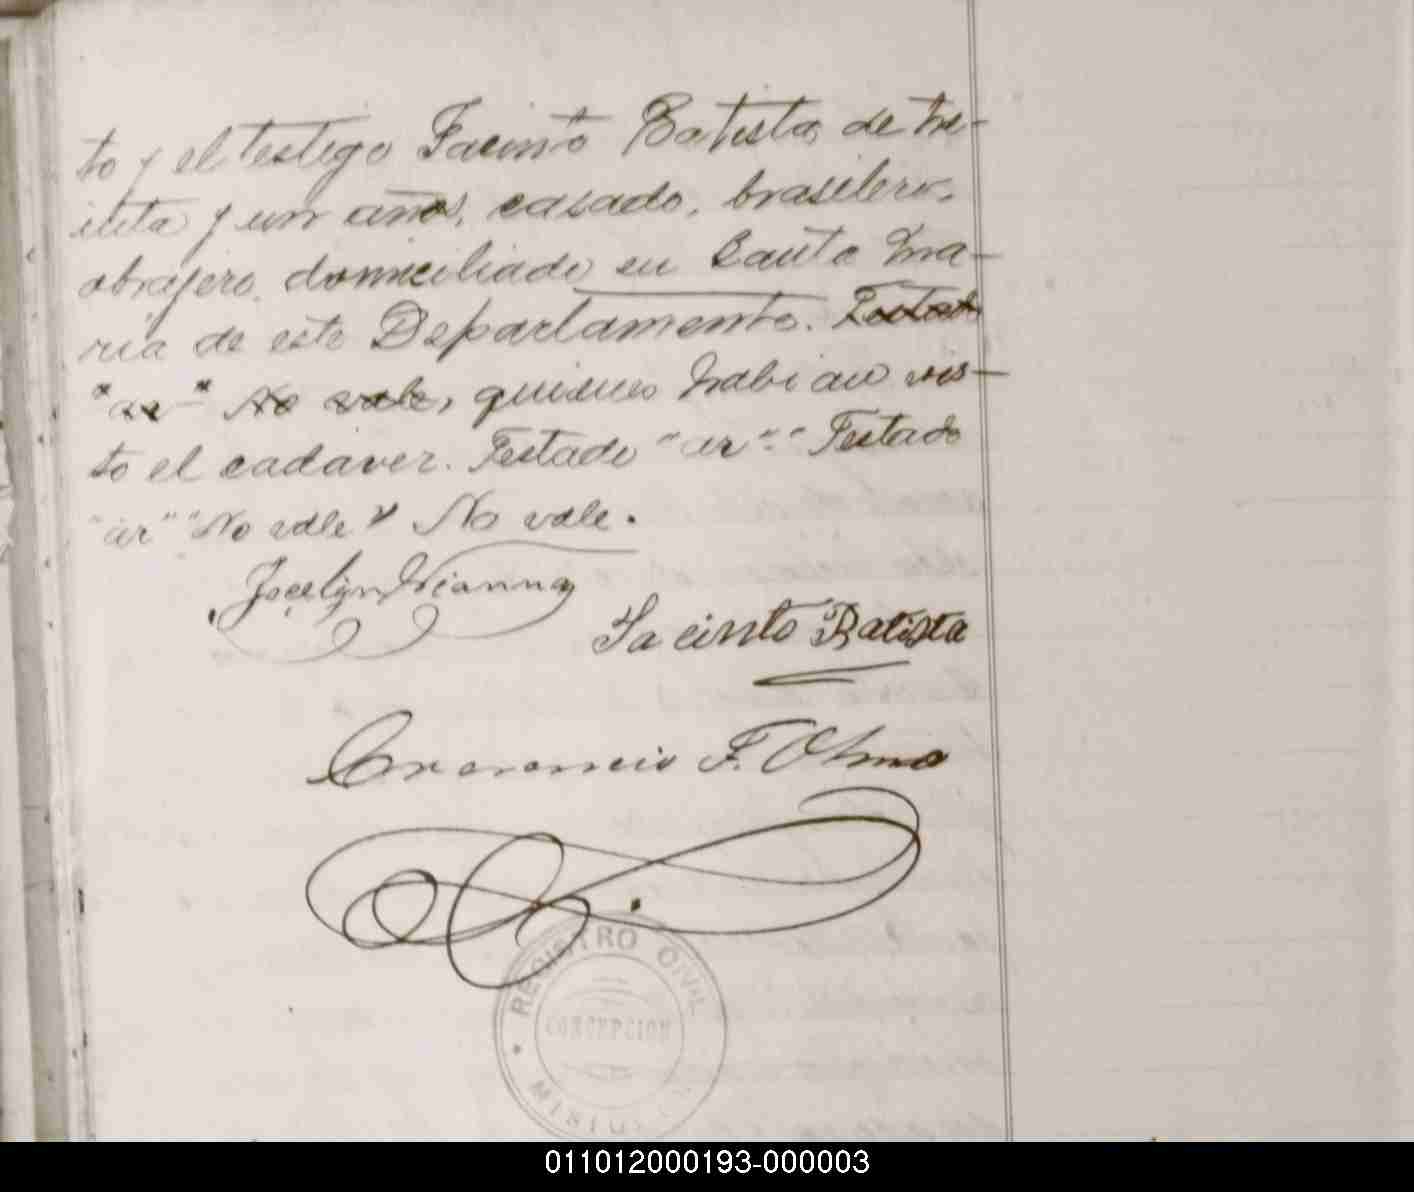 to y el testigo Jacinto Batista, de tre-
inta y un años, casado, brasilero,
obrajero, domiciliado en Santa Ma-
ria de este Departamento. Testado
"ar" No vale, quienes habian vis-
to el cadaver. Testado "ar". Testado
"ar" "No vale" No vale.
Jocelyn Vianna
Jacinto Batista
Venancio F. Olmo
REGISTRO CIVIL
CONCEPCION
MISIONES
011012000193-000003